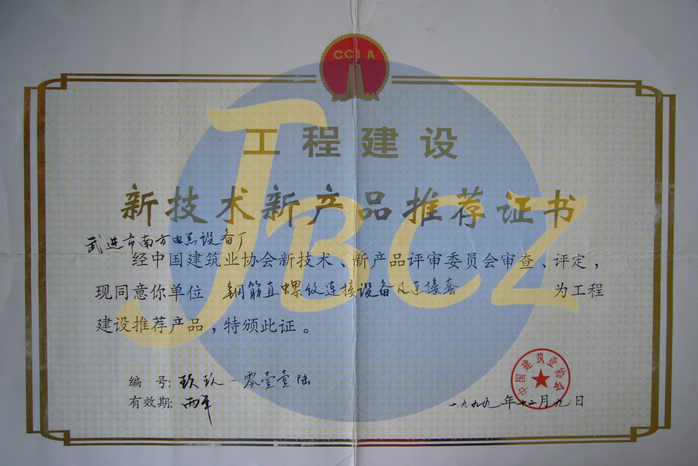 CCIA
工程建设
新技术新产品推荐证书
武进市南方电器设备厂
经中国建筑业协会新技术、新产品评审委员会审查、评定，
现同意你单位 钢筋直螺纹连接设备及连接套 为工程
建设推荐产品，特颁此证。
编号：玖玖—零壹壹陆
有效期：两年
中国建筑业协会
一九九九年十二月九日
JBCZ